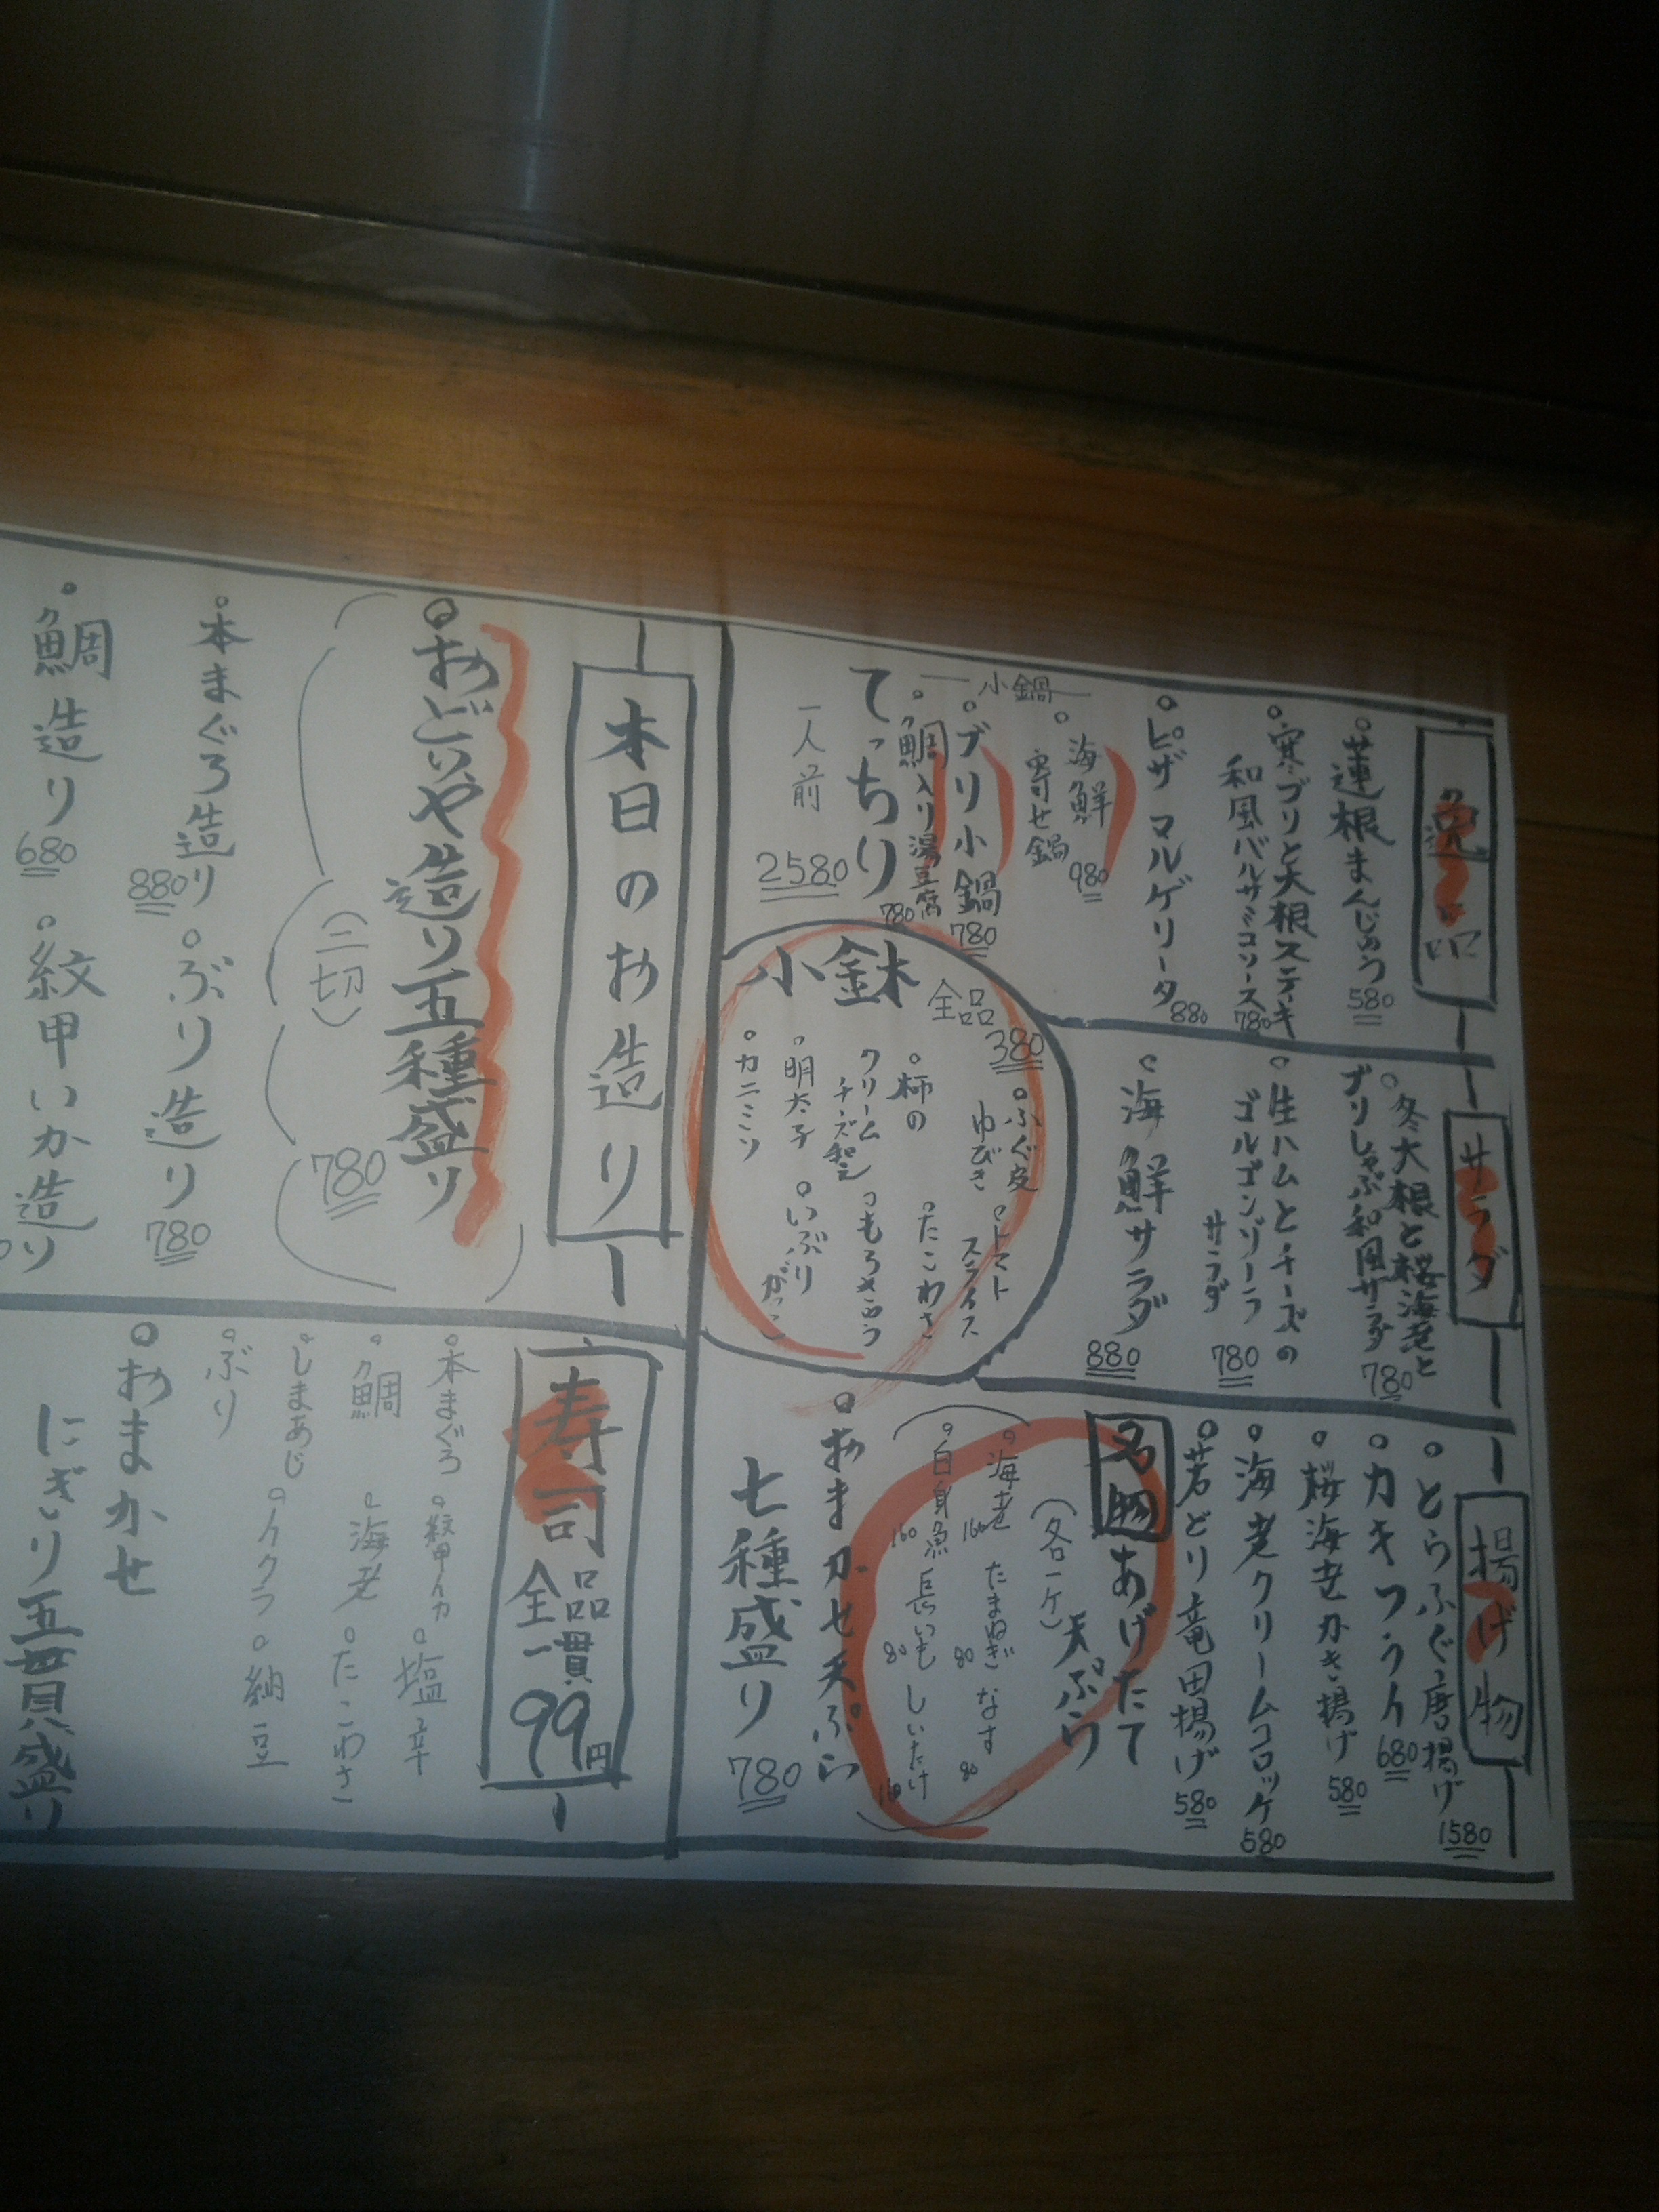 逸品
蓮根まんじゅう
580
寒ブリと大根ステーキ
和風バルサミコソース
780
ピザ マルゲリータ
880
小鍋
海鮮
寄せ鍋
980
ブリ小鍋
780
鯛入り湯豆腐
780
てっちり
一人前
2580
サラダ
冬大根と桜海老と
ブリしゃぶ和風サラダ
780
生ハムとチーズの
ゴルゴンゾーラ
サラダ
780
海鮮サラダ
880
小鉢
全品
380
ふぐ皮
ゆびき
トマト
スライス
柿の
クリーム
チーズ和え
たこわさ
もろきゅう
明太子
いぶり
がっこ
カニミソ
揚げ物
とらふぐ唐揚げ
1580
カキフライ
680
桜海老かき揚げ
580
海老クリームコロッケ
580
若どり竜田揚げ
580
名物あげたて
天ぷら
(各一ケ)
海老
160
たまねぎ
80
なす
80
白身魚
160
長いも
80
しいたけ
160
おまかせ天ぷら
七種盛り
780
本日のお造り
おどいや造り五種盛り
(二切)
780
本まぐろ造り
880
ぶり造り
780
鯛造り
680
紋甲いか造り
寿司全品一貫99円
本まぐろ
紋甲イカ
塩辛
鯛
海老
たこわさ
しまあじ
イクラ
納豆
ぶり
おまかせ
にぎり五貫盛り